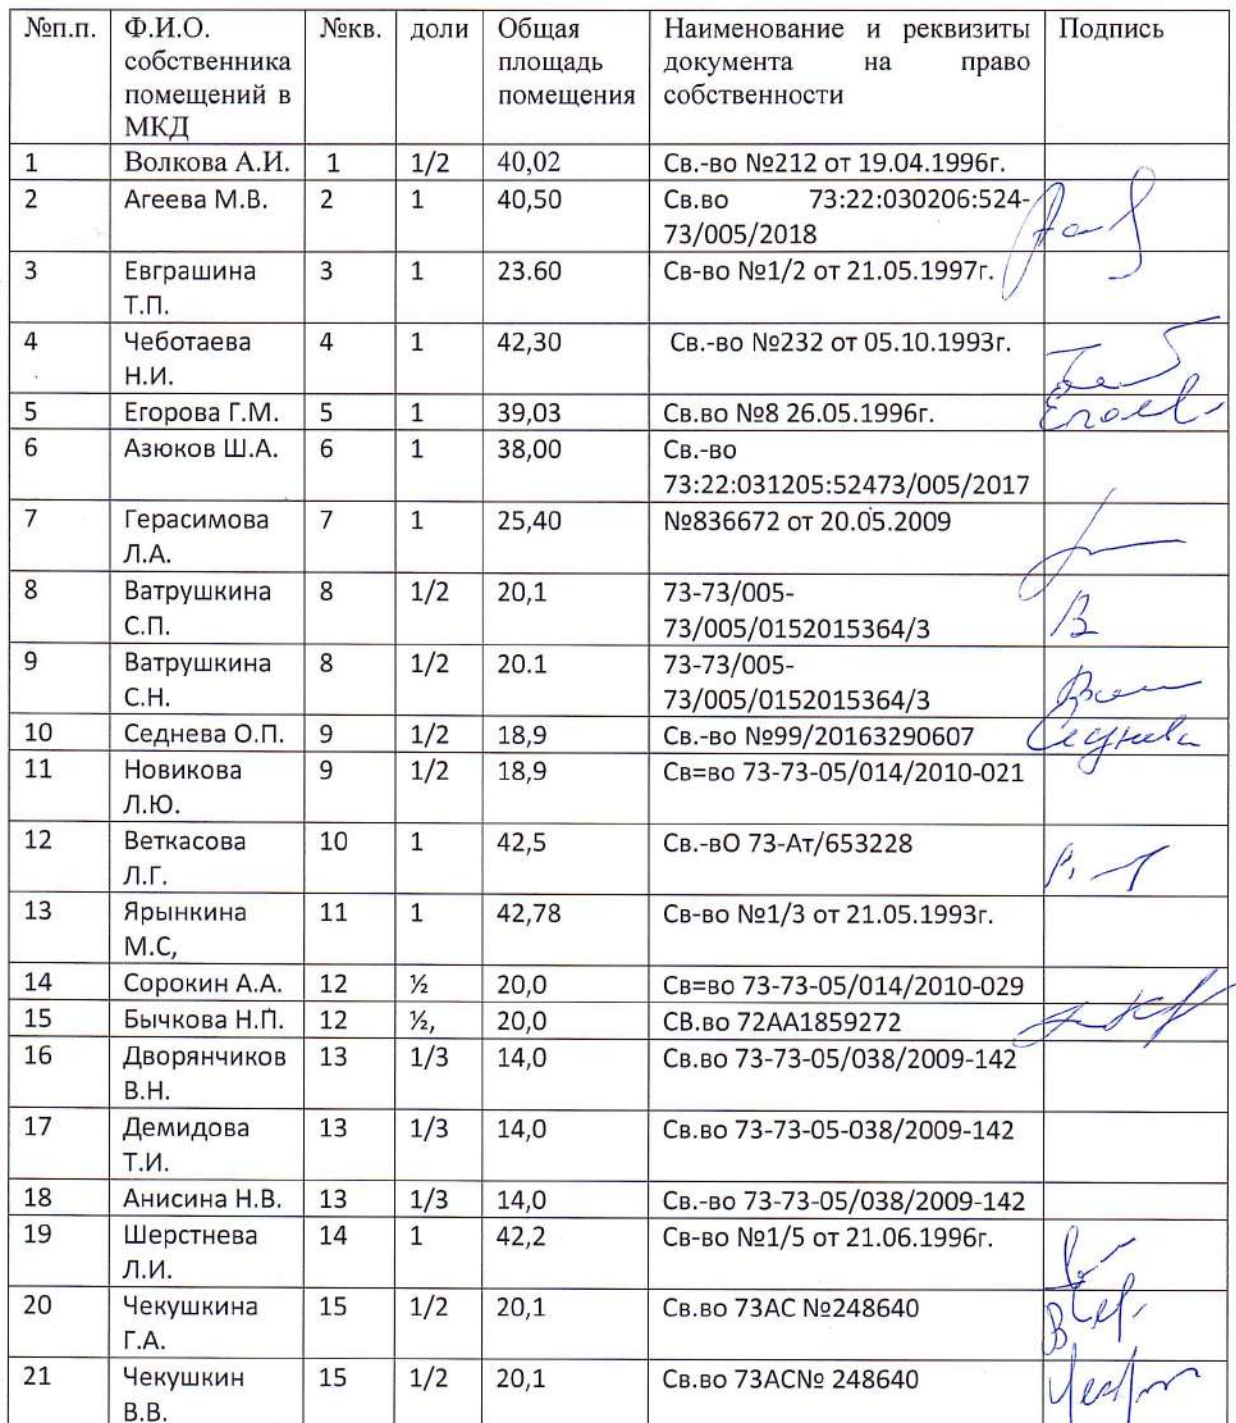 №п.п. Ф.И.О. собственника помещений в МКД №кв. доли Общая площадь помещения Наименование и реквизиты документа на право собственности Подпись
1 Волкова А.И. 1 1/2 40,02 Св.-во №212 от 19.04.1996г.
2 Агеева М.В. 2 1 40,50 Св.во 73:22:030206:524-
73/005/2018
3 Евграшина 3 1 23.60 Св-во №1/2 от 21.05.1997г.
Т.П.
4 Чеботаева 4 1 42,30 Св.-во №232 от 05.10.1993г.
Н.И.
5 Егорова Г.М. 5 1 39,03 Св.во №8 26.05.1996г.
6 Азюков Ш.А. 6 1 38,00 Св.-во
73:22:031205:52473/005/2017
7 Герасимова 7 1 25,40 №836672 от 20.05.2009
Л.А.
8 Ватрушкина 8 1/2 20,1 73-73/005-
С.П. 73/005/0152015364/3
9 Ватрушкина 8 1/2 20.1 73-73/005-
С.Н. 73/005/0152015364/3
10 Седнева О.П. 9 1/2 18,9 Св.-во №99/20163290607 Седнева
11 Новикова 9 1/2 18,9 Св=во 73-73-05/014/2010-021
Л.Ю.
12 Веткасова 10 1 42,5 Св.-вО 73-Ат/653228
Л.Г.
13 Ярынкина 11 1 42,78 Св-во №1/3 от 21.05.1993г.
М.С,
14 Сорокин А.А. 12 ½ 20,0 Св=во 73-73-05/014/2010-029
15 Бычкова Н.П. 12 ½, 20,0 СВ.во 72АА1859272
16 Дворянчиков 13 1/3 14,0 Св.во 73-73-05/038/2009-142
В.Н.
17 Демидова 13 1/3 14,0 Св.во 73-73-05-038/2009-142
Т.И.
18 Анисина Н.В. 13 1/3 14,0 Св.-во 73-73-05/038/2009-142
19 Шерстнева 14 1 42,2 Св-во №1/5 от 21.06.1996г.
Л.И.
20 Чекушкина 15 1/2 20,1 Св.во 73АС №248640
Г.А.
21 Чекушкин 15 1/2 20,1 Св.во 73АС№ 248640
В.В.